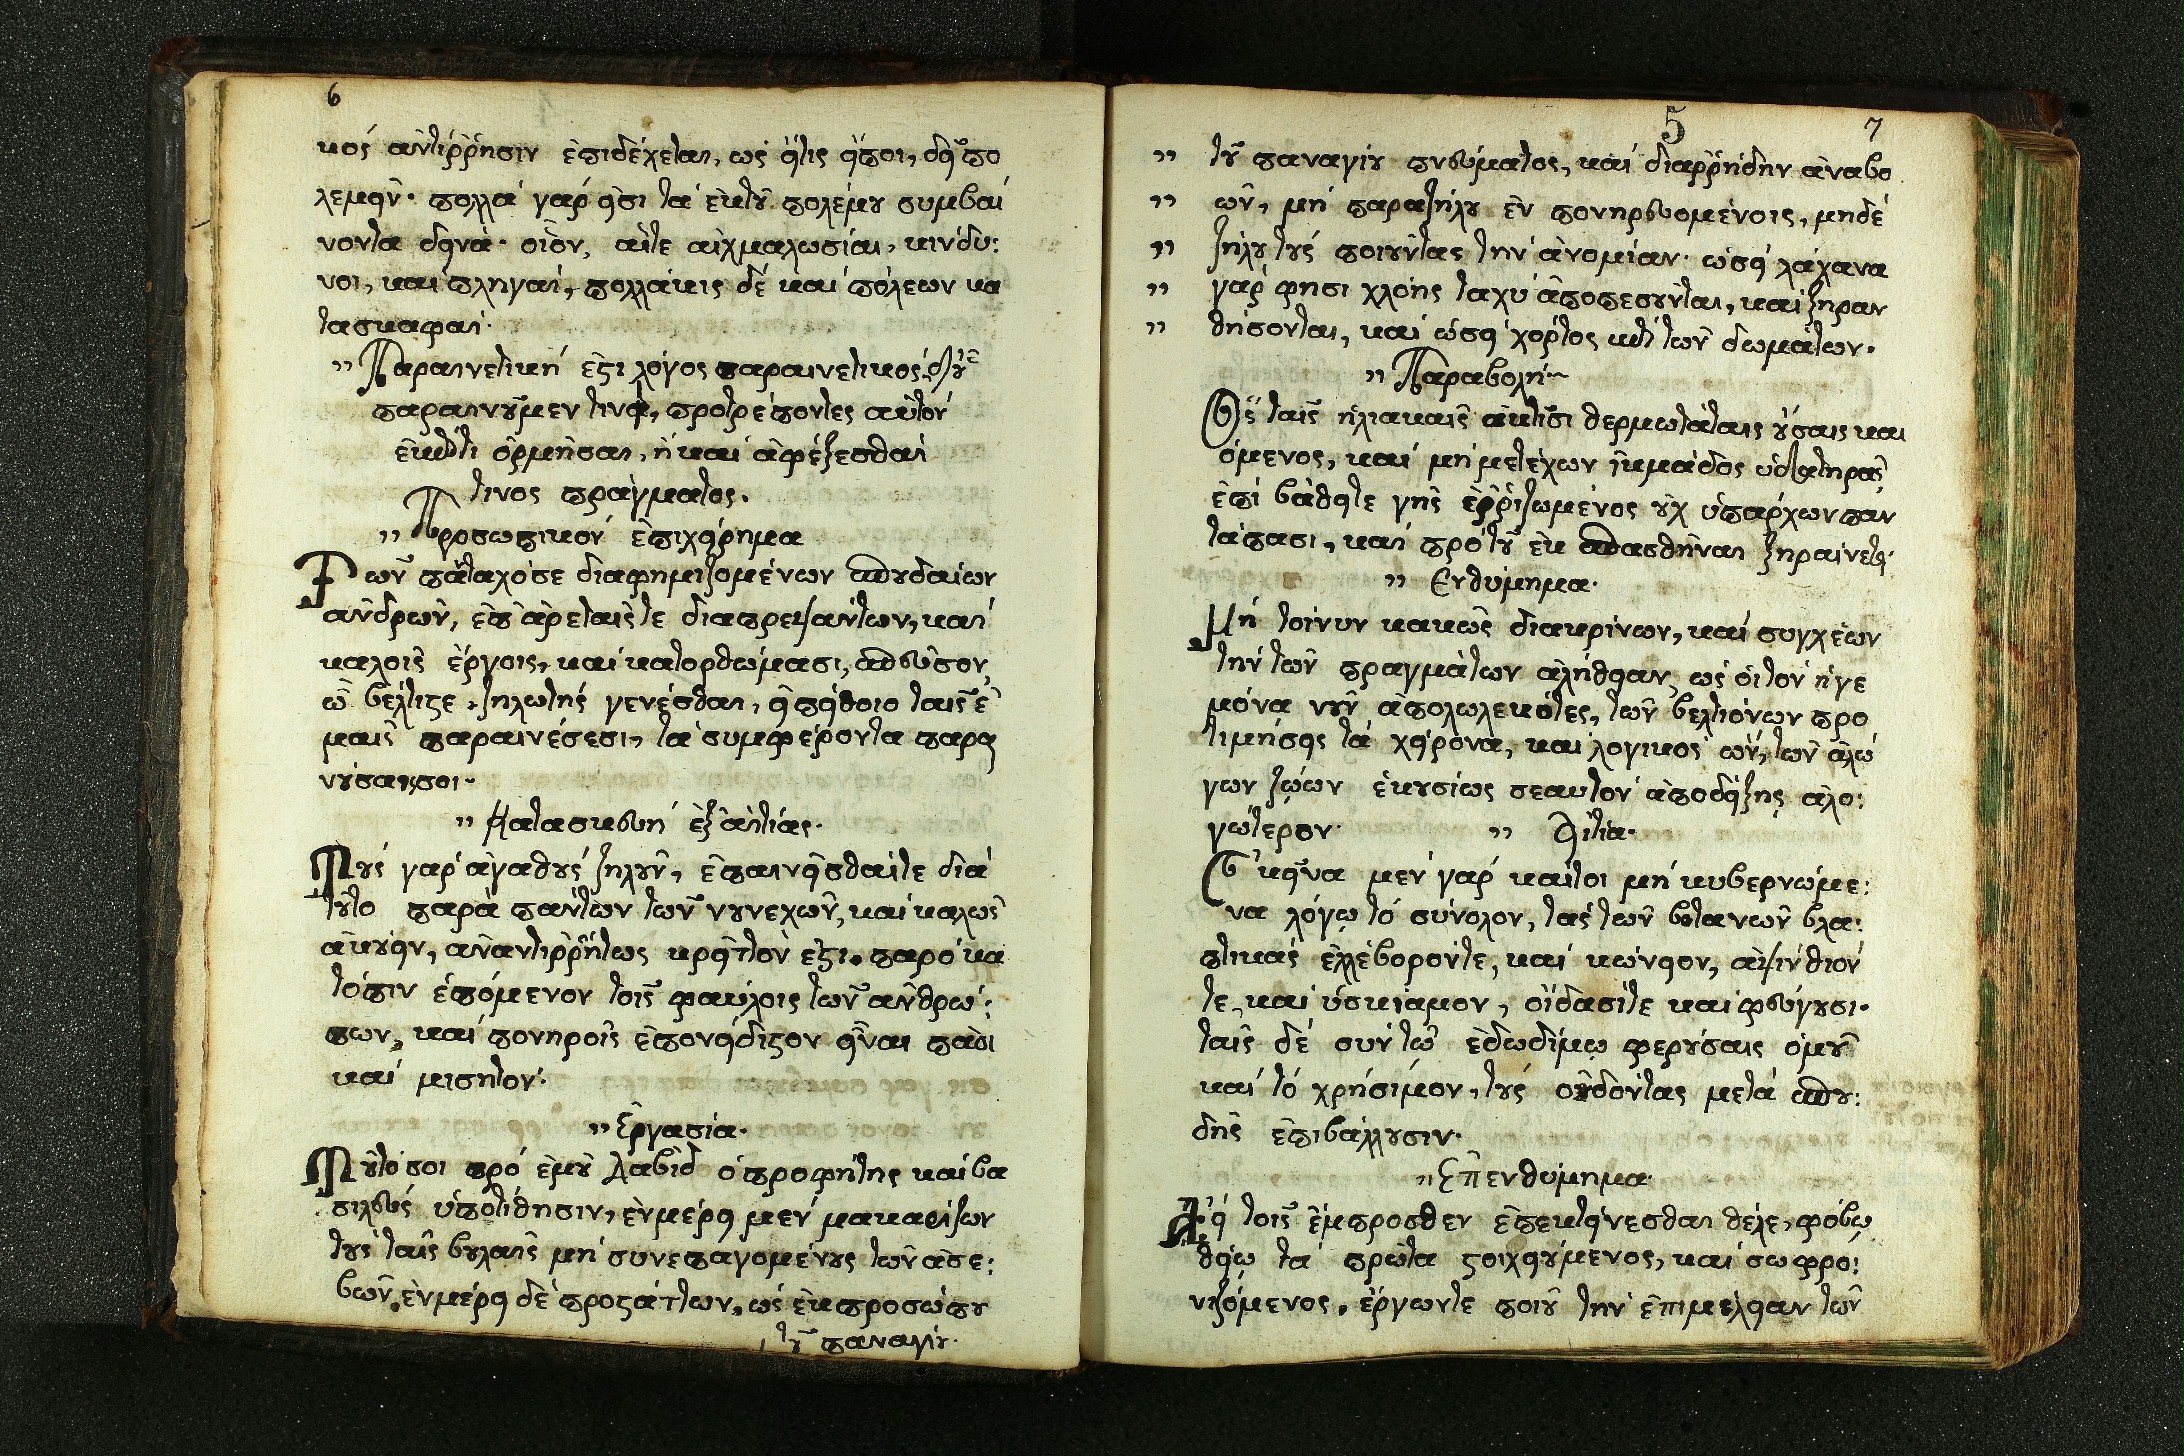 6
κὸς ἀντίῤῥησιν ἐπιδέχεται, ὡς εἴτις εἴποι, δεῖ πο
λεμεῖν· πολλὰ γάρ εἰσι τὰ ἐκτοῦ πολέμου συμβαί
νοντα δεινά· οἷον, αἵτε αἰχμαλωσίαι, κίνδυ:
νοι, καὶ πληγαί, πολλάκις δὲ καὶ πόλεων κα
τασκαφαί·
„ Παραινετική ἐστι λόγος παραινετικὸς,
παραινοῦμεν τινὰ, προτρέποντες αὐτὸν
ἐπί τι ὁρμῆσαι, ἢ καὶ ἀφέξεσθαί
τινος πράγματος.
„ Προσωπικὸν ἐπιχείρημα
Τῶν πανταχόσε διαφημιζομένων σπουδαίων
ἀνδρῶν, ἐπ' ἀρεταῖς τε διαπρεψάντων, καὶ
καλοῖς ἔργοις, καὶ κατορθώμασι, σπεῦσον,
ὦ βέλτιστε, ζηλωτὴς γενέσθαι, εἰ πείθοιο ταῖς ἐ
μαῖς παραινέσεσι, τὰ συμφέροντα παραι
νούσαις σοι·
„ Κατασκευὴ ἐξ αἰτίας·
Τοὺς γὰρ ἀγαθοὺς ζηλοῦν, ἐπαινεῖσθαί τε διὰ
τοῦτο παρὰ πάντων τῶν νουνεχῶν, καὶ καλῶς
ἀκούειν, ἀναντιῤῥήτως κρεῖττόν ἐστι. παρὸ κα
τόπιν ἑπόμενον τοῖς φαύλοις τῶν ἀνθρώ:
πων, καὶ πονηροῖς ἐπονείδιστον εἶναι πᾶσι
καὶ μισητόν·
„ Ἐργασία·
Τοῦτό σοι πρὸ ἐμοῦ Δαβὶδ ὁ προφήτης καὶ βα
σιλεὺς ὑποτίθησιν, ἐν μέρει μὲν μακαρίζων
τοὺς ταῖς βουλαῖς μὴ συνεπαγομένους τῶν ἀσε:
βῶν, ἐν μέρει δὲ προστάττων, ὡς ἐκ προσώπου
τοῦ παναγίου·
5
7
„ τοῦ παναγίου πνεύματος, καὶ διαῤῥήδην ἀναβο
„ ῶν, μὴ παραζήλου ἐν πονηρευομένοις, μηδὲ
„ ζήλου τοὺς ποιοῦντας τὴν ἀνομίαν· ὡσεὶ λάχανα
„ γάρ φησι χλόης ταχὺ ἀποπεσοῦνται, καὶ ξηραν
„ θήσονται, καὶ ὡσεὶ χόρτος ἐπὶ τῶν δωμάτων.
„ Παραβολή
Ὁ ταῖς ἡλιακαῖς ἀκτῖσι θερμωτάταις οὔσαις και
όμενος, καὶ μὴ μετέχων ἰκμάδος ὑδατηρᾶς
ἐπὶ βάθει τε γῆς ἐῤῥιζωμένος οὐχ ὑπάρχων παν
τάπασι, καὶ πρὸ τοῦ ἐκσπασθῆναι ξηραίνεται·
„ Ενθύμημα·
Μὴ τοίνυν κακῶς διακρίνων, καὶ συγχέων
τὴν τῶν πραγμάτων ἀλήθειαν, ὡς οἱ τὸν ἡγε
μόνα νοῦν ἀπολωλεκότες, τῶν βελτιόνων προ
τιμήσεις τὰ χείρονα, καὶ λογικὸς ὢν, τῶν ἀλό
γων ζώων ἑκουσίως σεαυτὸν ἀποδείξῃς ἀλο:
γώτερον· „ Αἰτία·
Ἐκεῖνα μὲν γὰρ καίτοι μὴ κυβερνώμε:
να λόγῳ τὸ σύνολον, τὰς τῶν βοτανῶν βλα:
πτικὰς ἐλλέβορόν τε, καὶ κώνειον, ἀψίνθιόν
τε, καὶ ὑσκίαμον, οἴδασί τε καὶ φεύγουσι·
ταῖς δὲ σὺν τῷ ἐδωδίμῳ φερούσαις ὁμοῦ
καὶ τὸ χρήσιμον, τοὺς ὀδόντας μετὰ σπου:
δῆς ἐπιβάλλουσιν·
„ Ἐπενθύμημα
Ἀεὶ τοῖς ἔμπροσθεν ἐπεκτείνεσθαι θέλε, φόβῳ
θείῳ τὰ πρῶτα στοιχειούμενος, καὶ σωφρο:
νιζόμενος, ἔργων τε ποιοῦ τὴν ἐπιμέλειαν τῶν